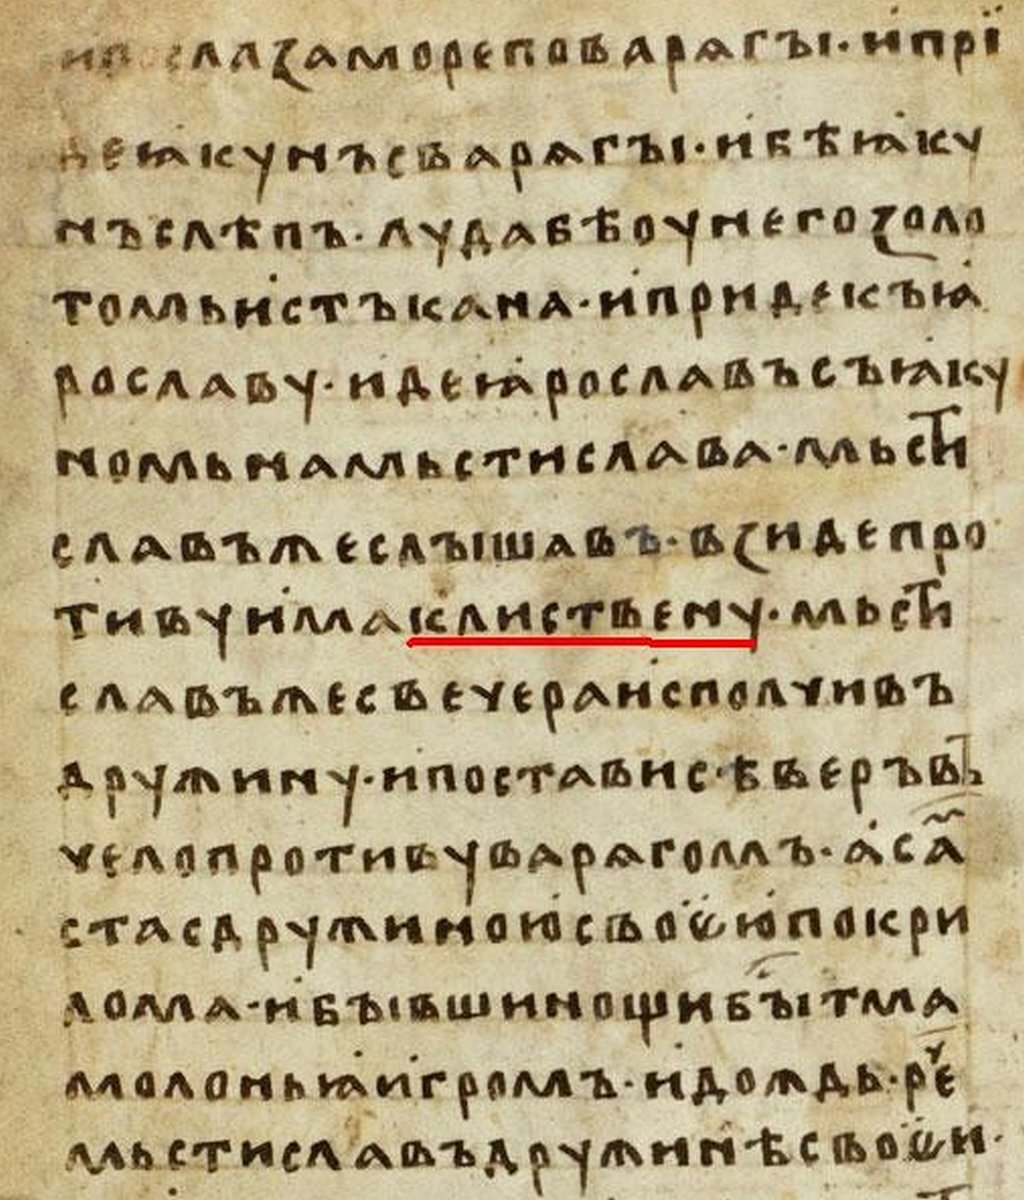 ипослазамореповарѧгъı·ипрї
деꙗкунъсварѧгъı·ибѣꙗку
нъслѣпъ·лудабѣоунегозоло
томьистъкана·ипридекъꙗ
рославу·идеꙗрославъсъꙗку
номьнамьстислава·мьстⷭ҇и
славъжеслъıшавъ·взидепро
тивуимаклиствену·мьстⷭ҇и
славъжесвечераисполчивъ
дружину·ипостависѣверъвь
челопротивуварѧгомъ·аса
стасдружиноюсвоєюпокри
лома·ибъıвшинощибъıтма
молоньꙗигромъ·идождь·рче
мьстиславъдружинѣсвоєи·